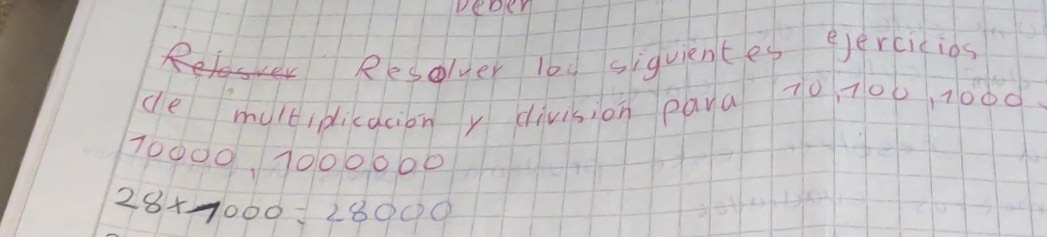 Deber
Resolver los siguientes ejercicios
de multiplicacion y división para 10,100,1000.
10000, 1000000
28x1000=28000